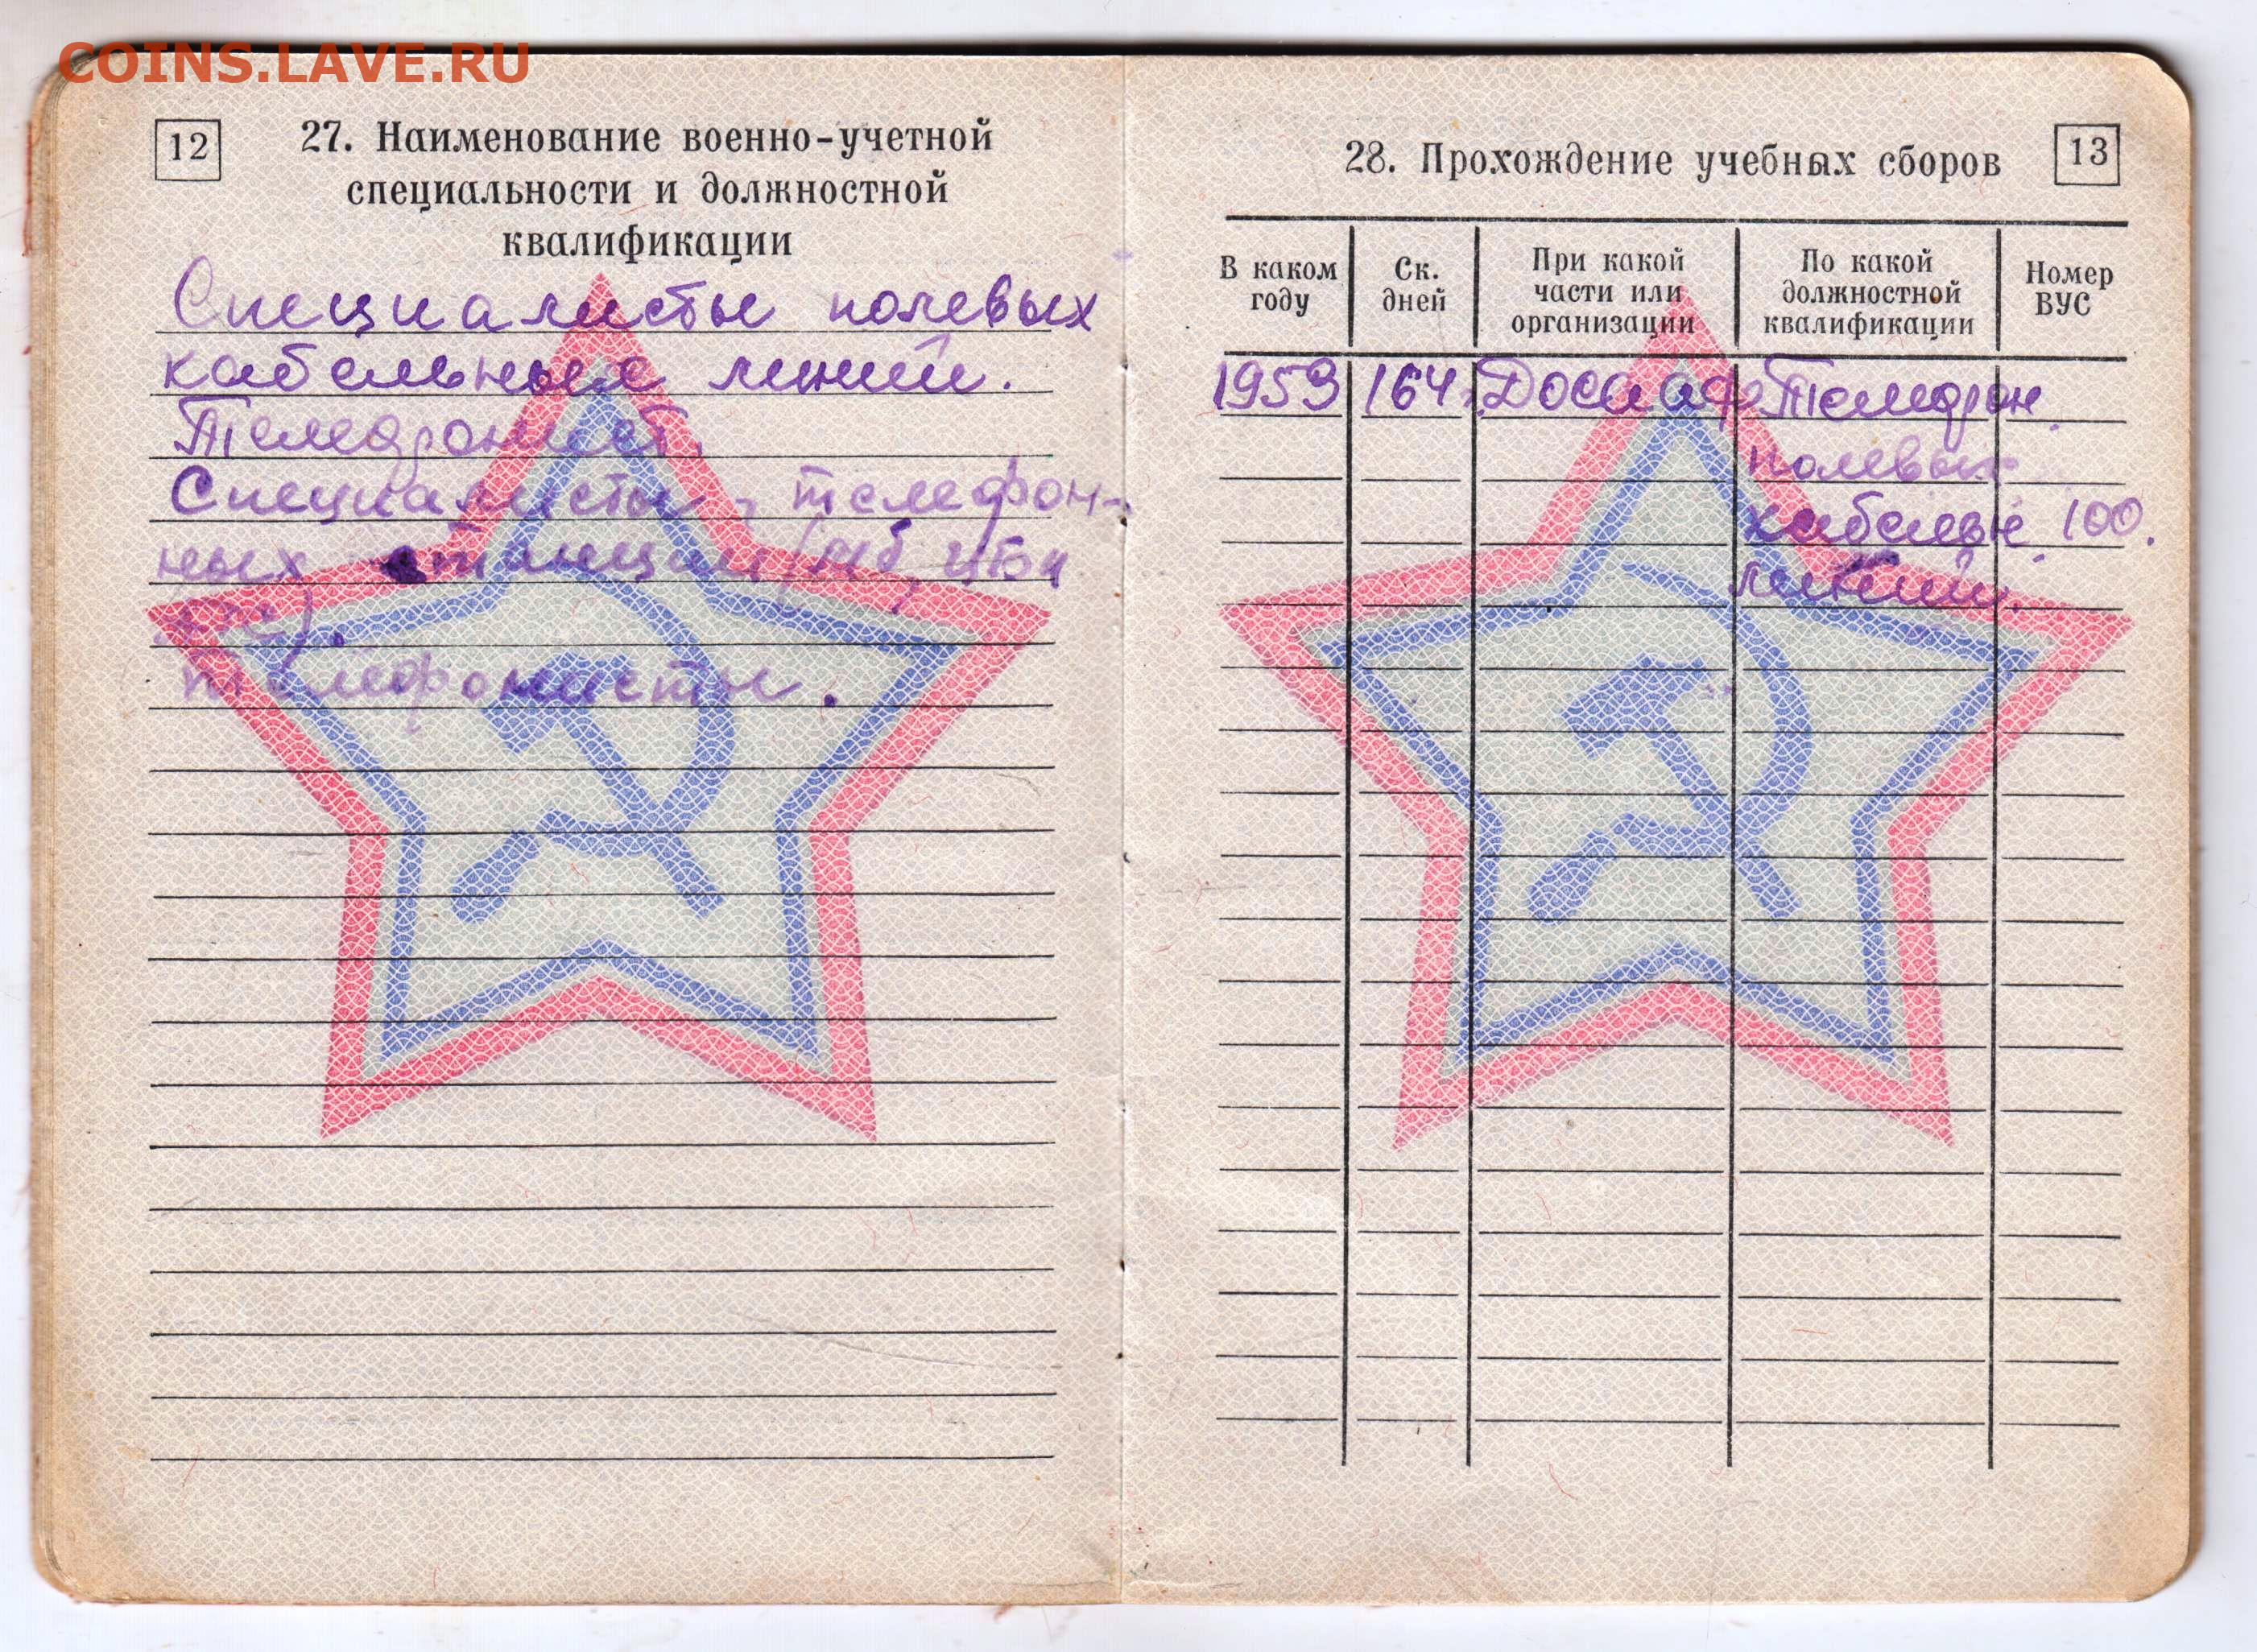 COINS.LAVE.RU
12
27. Наименование военно-учетной
специальности и должностной
квалификации
Специалисты полевых
кабельных линий.
Телефонист.
Специалисты телефон-
ных станций (МБ, ЦБ и
телефонисты.
28. Прохождение учебных сборов
13
В каком году
Ск. дней
При какой части или организации
По какой должностной квалификации
Номер ВУС
1953 164 Досааф Телефон.
полевых
кабельн. 100.
линий.